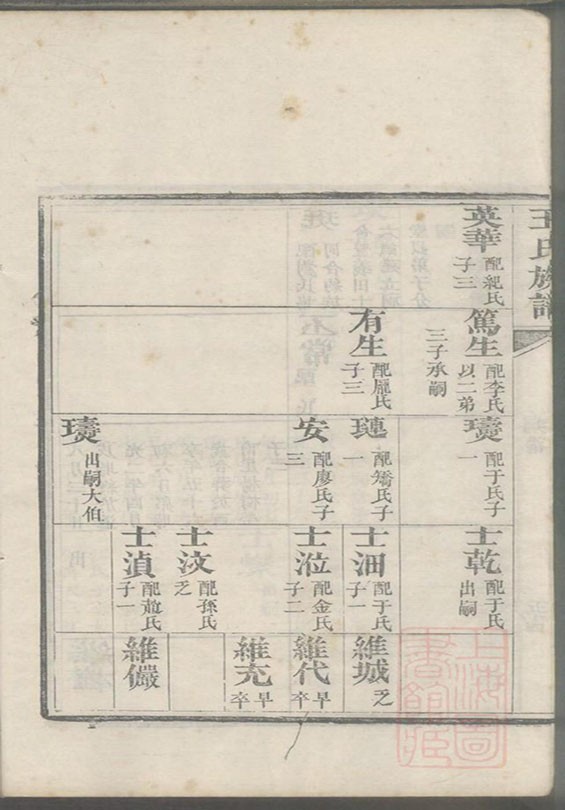 王氏族譜
英華 配紀氏
子三
篤生 配李氏
以二弟
三子承嗣
有生 配龐氏
子三
㻛 配于氏子
一
璉 配矯氏子
一
安 配廖氏子
三
㻛 出嗣大伯
士乾 配于氏
出嗣
士沺 配于氏
子一
士涖 配金氏
子二
士汶 配孫氏
乏
士滇 配趙氏
子一
維城 乏
維代 早卒
維充 早卒
維儼
上海圖書館藏